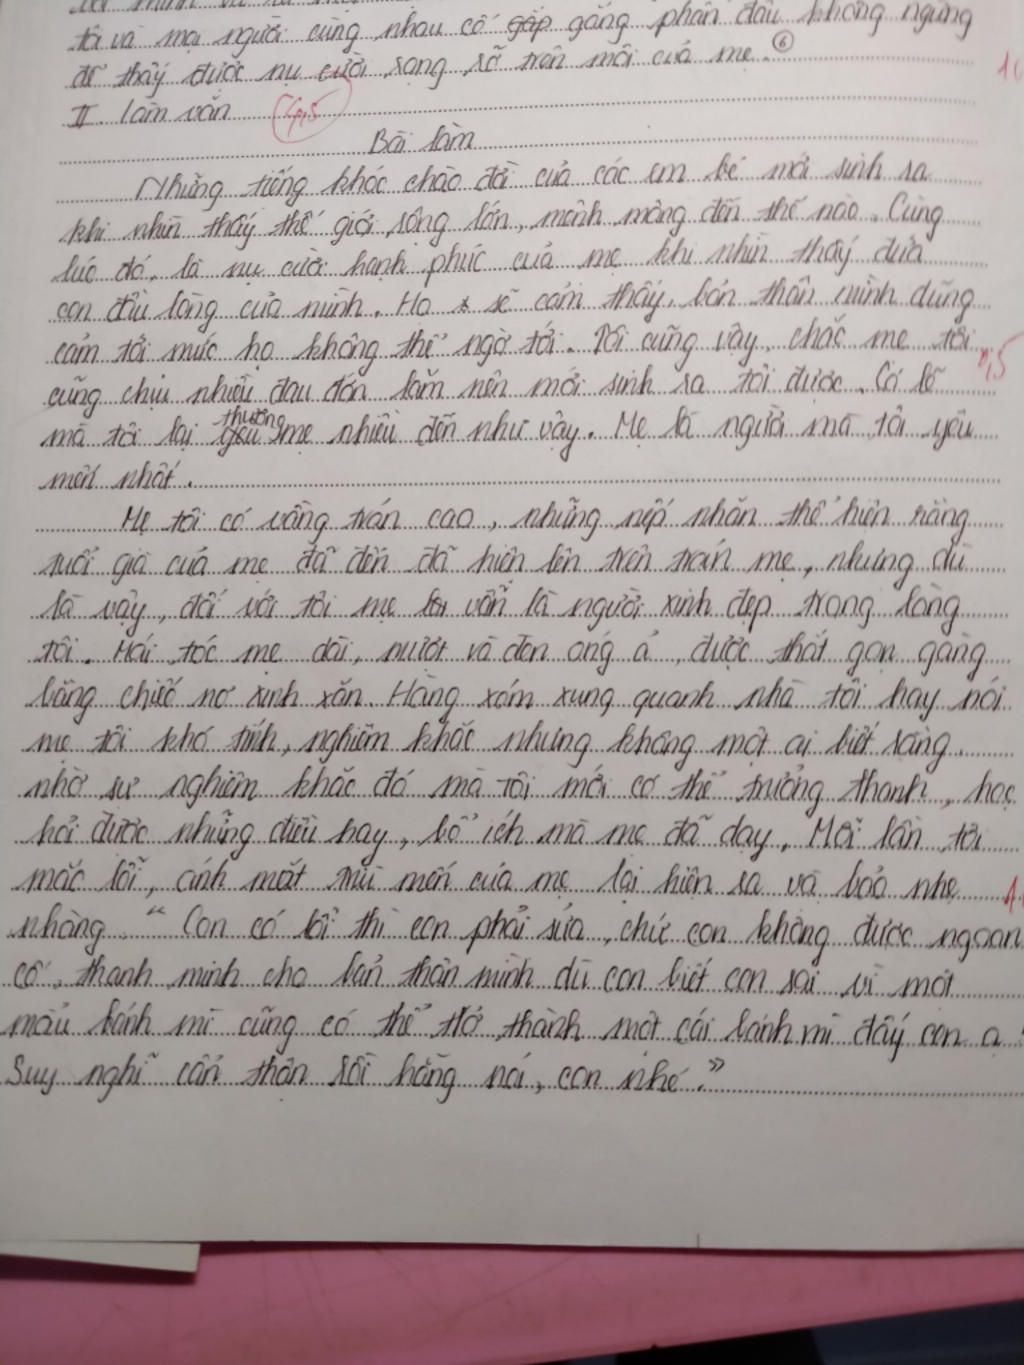 tôi và mọi người cùng nhau cố gắng phấn đấu không ngừng
để thấy được nụ cười rạng rỡ trên môi của mẹ. 6
II. Làm văn 4,5
Bài làm
Những tiếng khóc chào đời của các em bé mới sinh ra
khi nhìn thấy thế giới rộng lớn, mênh mông đến thế nào. Cùng
lúc đó, là nụ cười hạnh phúc của mẹ khi nhìn thấy đứa
con đầu lòng của mình. Họ sẽ cảm thấy, bản thân mình dũng
cảm tới mức họ không thể ngờ tới. Tôi cũng vậy, chắc mẹ tôi
cũng chịu nhiều đau đớn lắm nên mới sinh ra tôi được. Có lẽ
mà tôi lại thương mẹ nhiều đến như vậy. Mẹ là người mà tôi yêu
mến nhất.
Mẹ tôi có vầng trán cao, những nếp nhăn thể hiện rằng
tuổi già của mẹ đã đến đã hiện lên trên trán mẹ, nhưng dù
là vậy, đối với tôi mẹ vẫn là người xinh đẹp trong lòng
tôi. Mái tóc mẹ dài, mượt và đen óng ả, được thắt gọn gàng
bằng chiếc nơ xinh xắn. Hàng xóm xung quanh nhà tôi hay nói
mẹ tôi khó tính, nghiêm khắc nhưng không một ai biết rằng
nhờ sự nghiêm khắc đó mà tôi mới có thể trưởng thành, học
hỏi được những điều hay, bổ ích mà mẹ đã dạy. Mỗi lần tôi
mắc lỗi, ánh mắt trìu mến của mẹ lại hiện ra và bảo nhẹ
nhàng "Con có lỗi thì con phải sửa, chứ con không được ngoan
cố, thanh minh cho bản thân mình dù con biết con sai vì một
mẩu bánh mì cũng có thể trở thành một cái bánh mì đấy con ạ
Suy nghĩ cẩn thận rồi hẵng nói, con nhé."